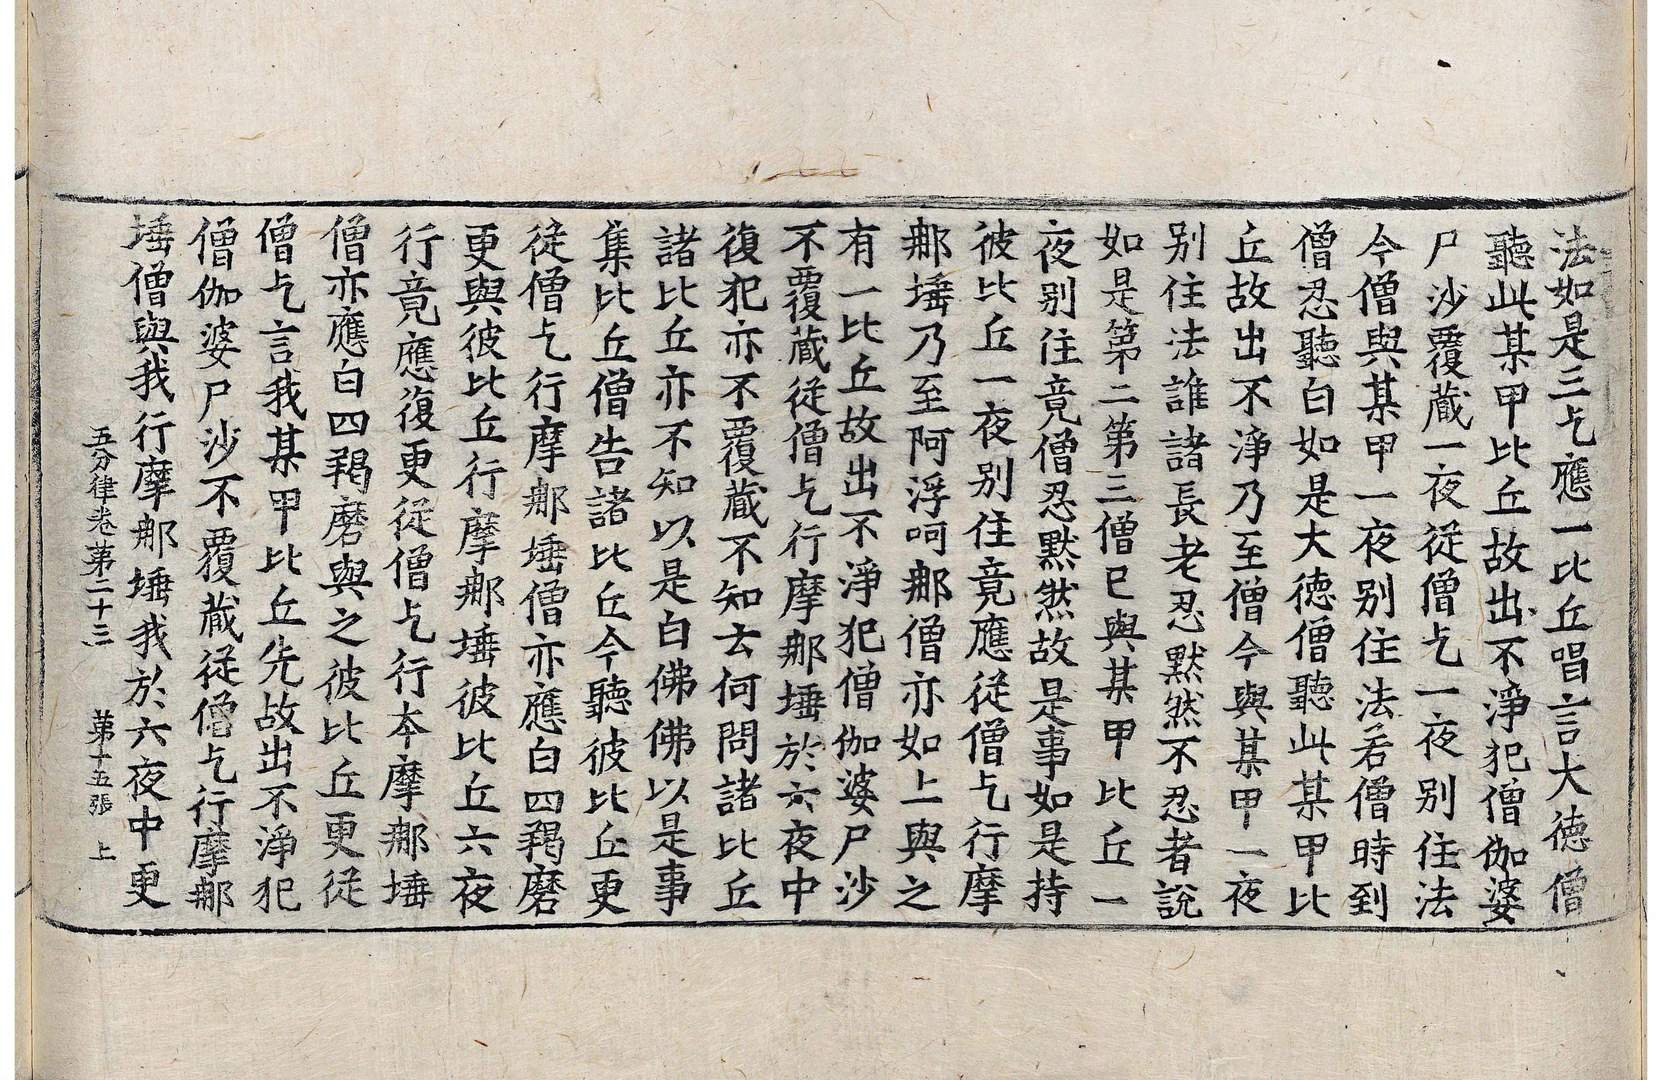 法如是三乞應一比丘唱言大德僧
聽此某甲比丘故出不淨犯僧伽婆
尸沙覆藏一夜從僧乞一夜別住法
今僧與某甲一夜別住法若僧時到
僧忍聽白如是大德僧聽此某甲比
丘故出不淨乃至僧今與某甲一夜
別住法誰諸長老忍默然不忍者說
如是第二第三僧已與某甲比丘一
夜別住竟僧忍默然故是事如是持
彼比丘一夜別住竟應從僧乞行摩
那埵乃至阿浮呵那僧亦如上與之
有一比丘故出不淨犯僧伽婆尸沙
不覆藏從僧乞行摩那埵於六夜中
復犯亦不覆藏不知云何問諸比丘
諸比丘亦不知以是白佛佛以是事
集比丘僧告諸比丘今聽彼比丘更
從僧乞行摩那埵僧亦應白四羯磨
更與彼比丘行摩那埵彼比丘六夜
行竟應復更從僧乞行本摩那埵
僧亦應白四羯磨與之彼比丘更從
僧乞言我某甲比丘先故出不淨犯
僧伽婆尸沙不覆藏從僧乞行摩那
埵僧與我行摩那埵我於六夜中更
五分律卷第二十三 第十五張 上